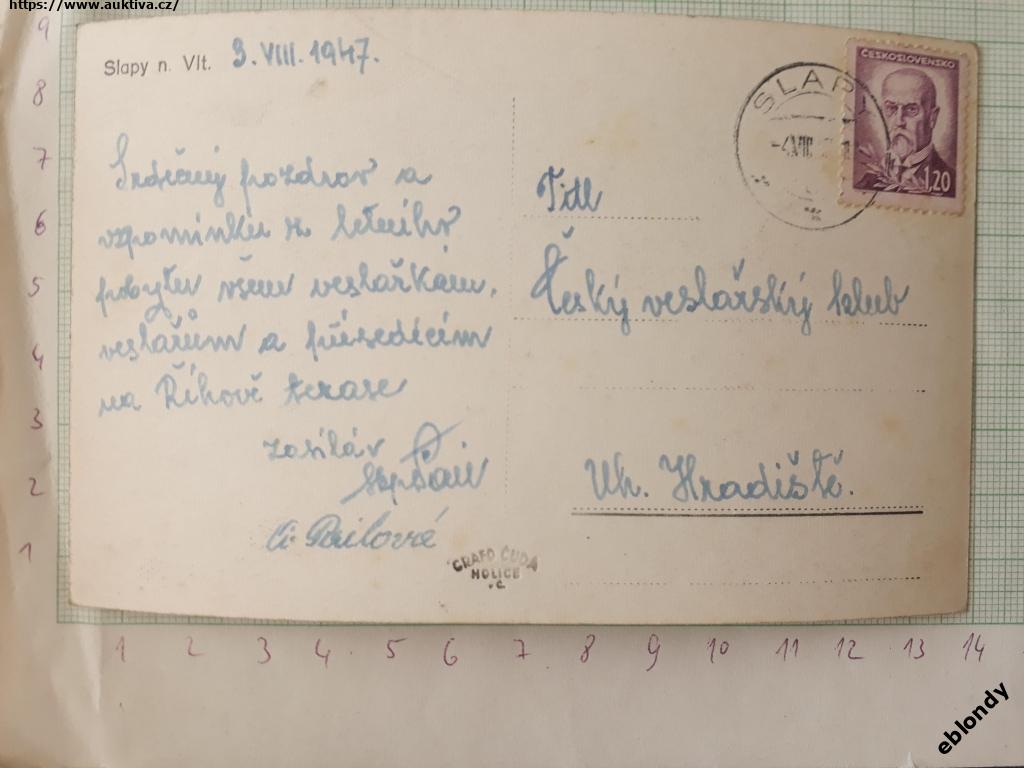 https://www.auktiva.cz/
Slapy n. Vlt. 3. VIII. 1947.
Srdečný pozdrav a
vzpomínku z letního
pobytu všem veslařkám,
veslařům a přísedícím
na Říhově terase
zasílá
Tit.
Český veslařský klub
Uh. Hradiště.
SLAPY
-4.VIII.
ČESKOSLOVENSKO
1,20
GRAFO ČUDA
HOLICE
v Č.
9
8
7
6
5
4
3
2
1
1 2 3 4 5 6 7 8 9 10 11 12 13 14
eblondy